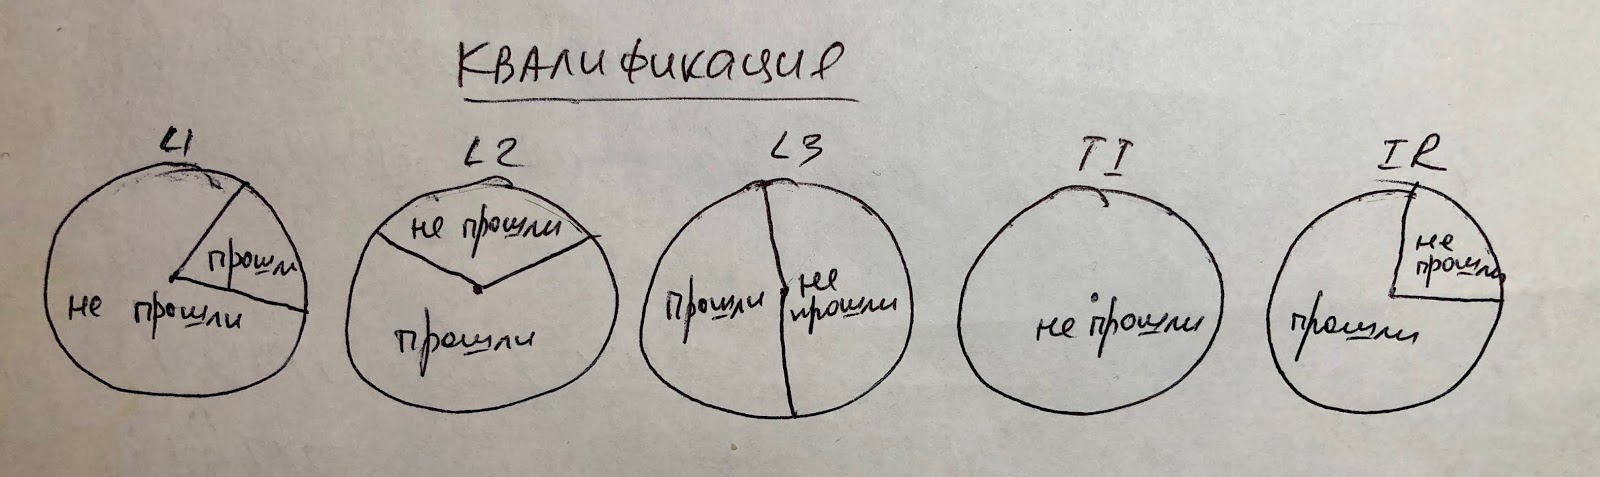 Квалификация
L1 L2 L3 TI IR
прошли
не прошли
не прошли
прошли
прошли
не
прошли
не прошли
не
прошли
прошли